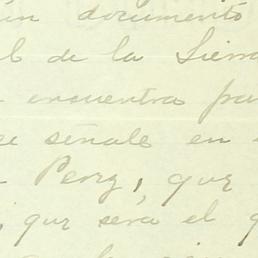 ún documento
l de la Sierra
encuentra
se señale en
Perez, que
, que sera el